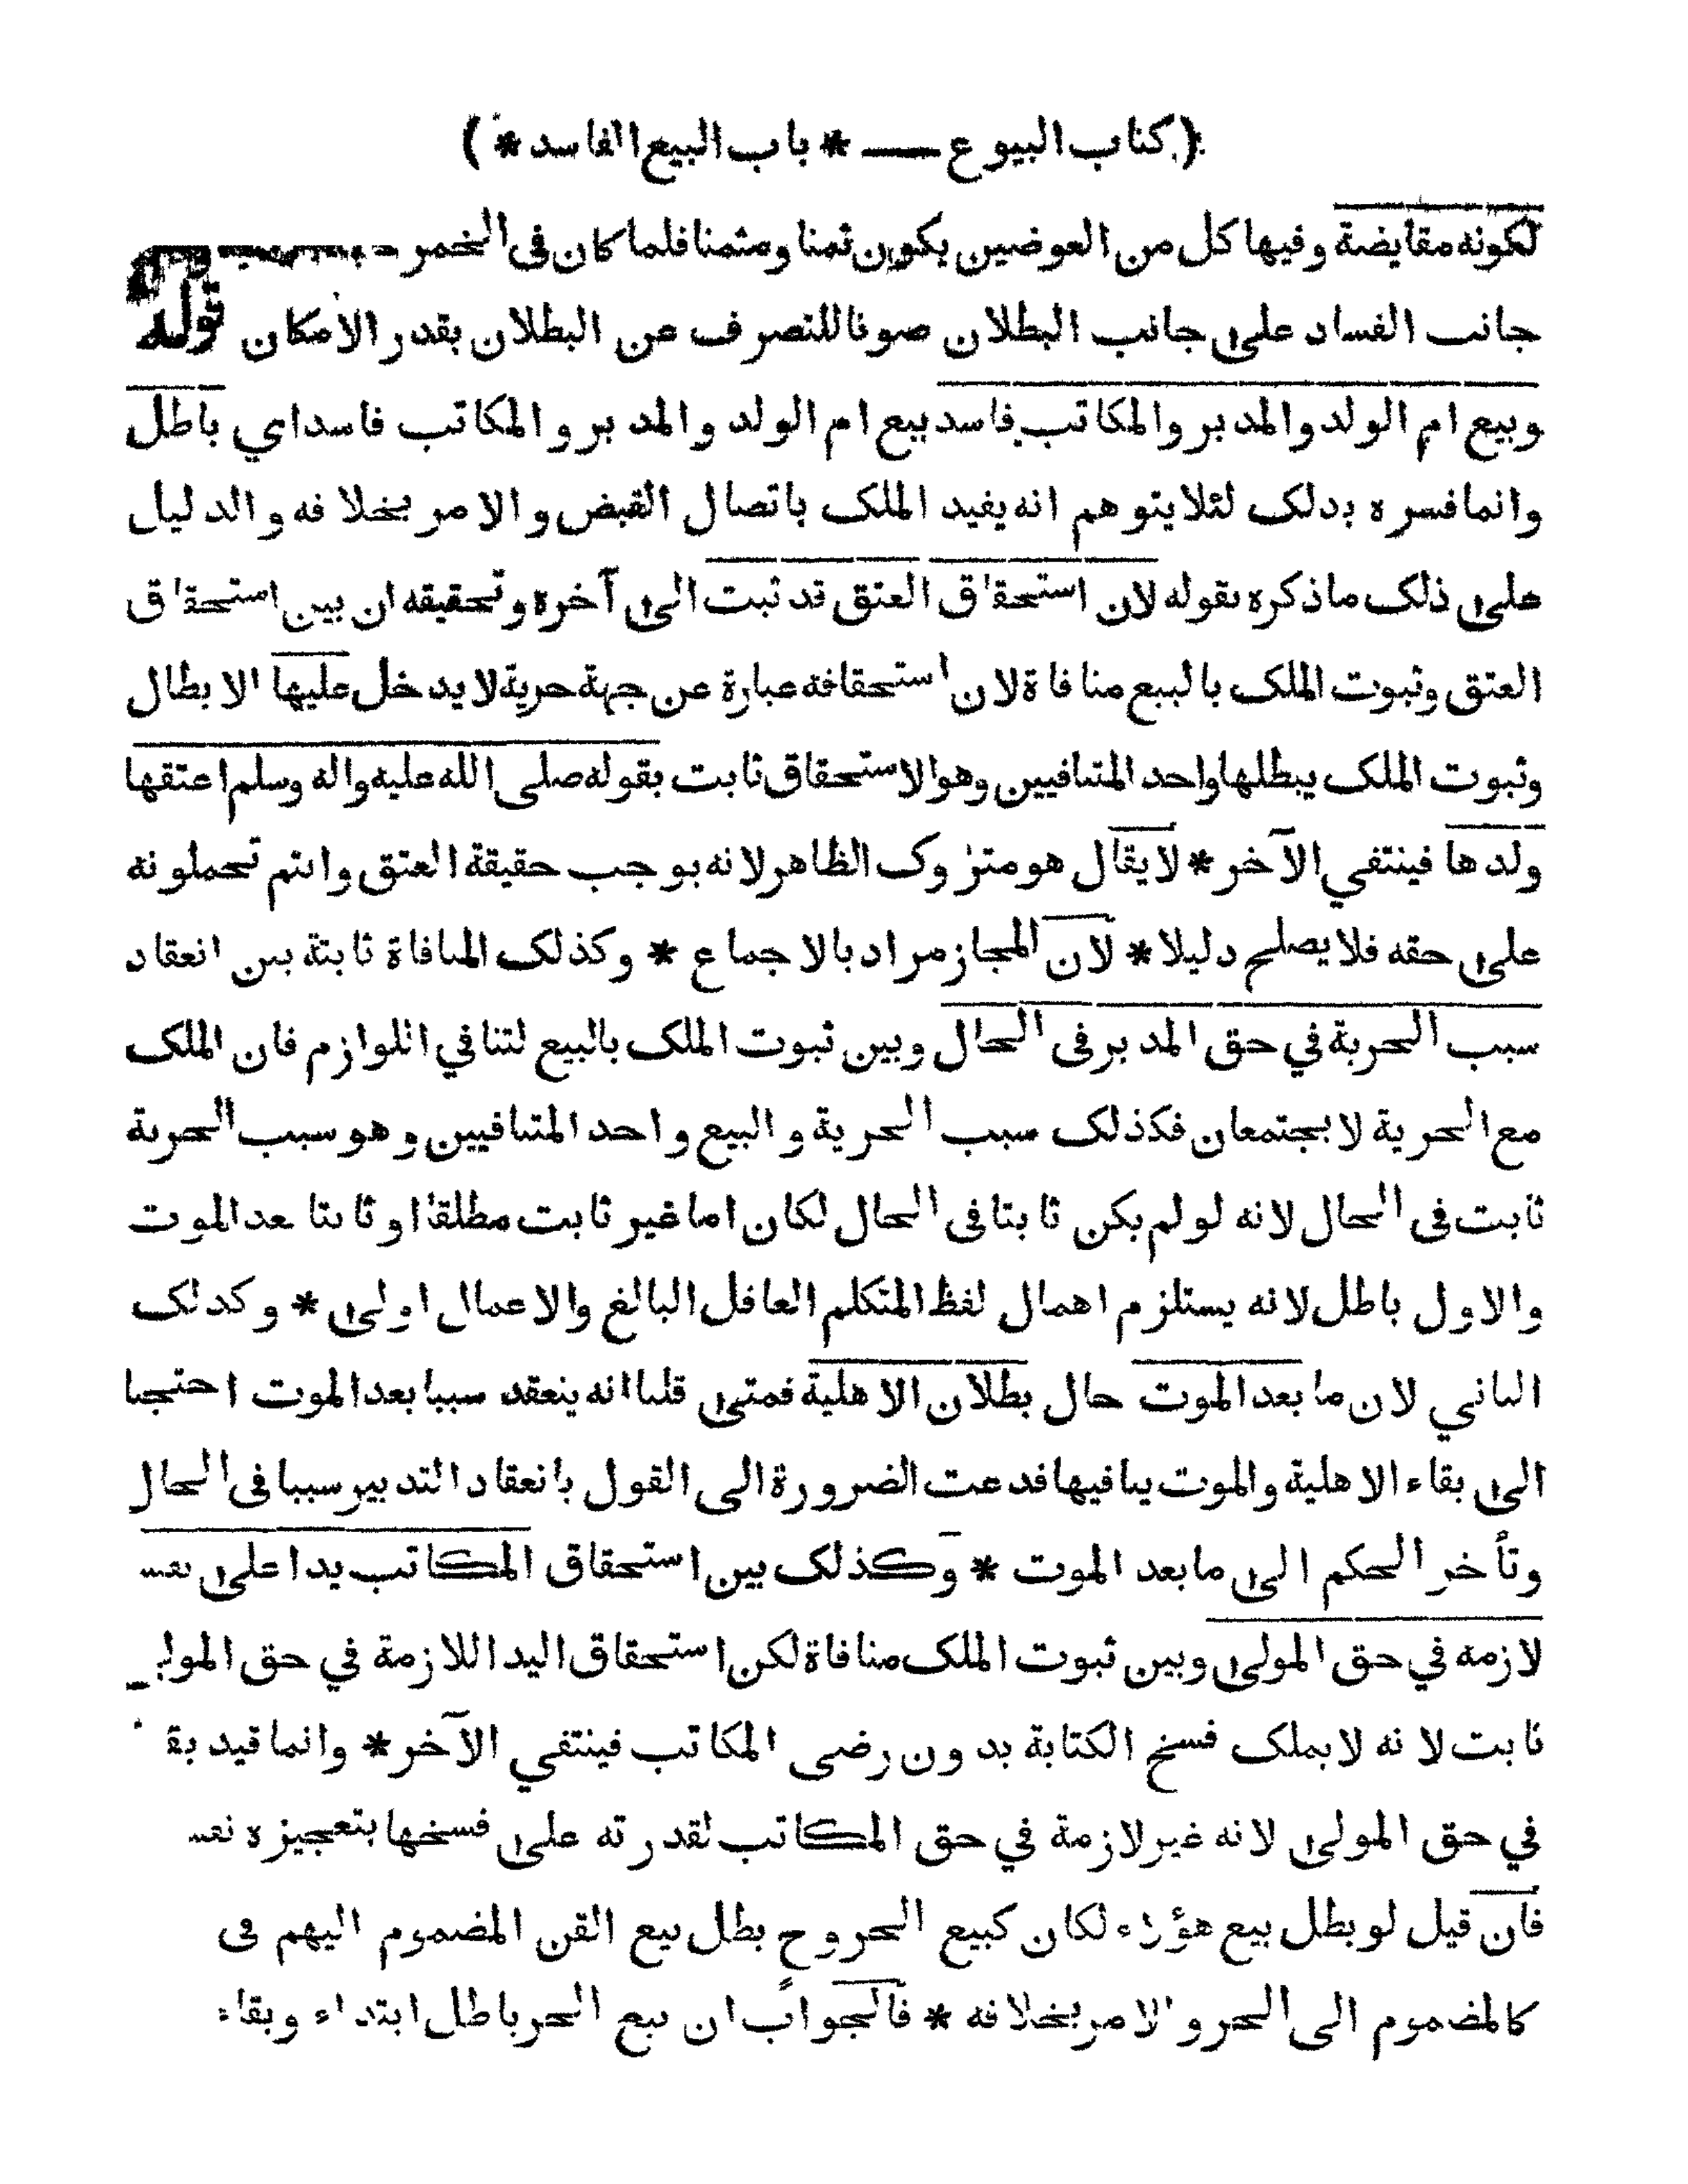 ( كتاب البيوع — * باب البيع الفاسد * )
لكونه مقايضة وفيها كل من العوضين يكون ثمنا ومثمنا فلما كان في الخمر
جانب الفساد على جانب البطلان صونا للتصرف عن البطلان بقدر الامكان قوله
وبيع ام الولد والمدبر والمكاتب فاسد بيع ام الولد والمدبر والمكاتب فاسد اي باطل
وانما فسره بدلك لئلا يتوهم انه يفيد الملك باتصال القبض والامر بخلافه والدليل
على ذلك ما ذكره بقوله لان استحقاق العتق قد ثبت الى آخره وتحقيقه ان بين استحقاق
العتق وثبوت الملك بالبيع منافاة لان استحقاقه عبارة عن جهة حرية لا يدخل عليها الابطال
وثبوت الملك يبطلها واحد المتنافيين وهو الاستحقاق ثابت بقوله صلى الله عليه واله وسلم اعتقها
ولدها فينتفي الآخر * لا يقال هو متروك الظاهر لانه يوجب حقيقة العتق وانتم تحملونه
على حقه فلا يصلح دليلا * لان المجاز مراد بالاجماع * وكذلك المنافاة ثابتة بين انعقاد
سبب الحرية في حق المدبر في الحال وبين ثبوت الملك بالبيع لتنافي اللوازم فان الملك
مع الحرية لا يجتمعان فكذلك سبب الحرية والبيع واحد المتنافيين وهو سبب الحرية
ثابت في الحال لانه لو لم يكن ثابتا في الحال لكان اما غير ثابت مطلقا او ثابتا بعد الموت
والاول باطل لانه يستلزم اهمال لفظ المتكلم العاقل البالغ والاعمال اولى * وكدلك
الثاني لان ما بعد الموت حال بطلان الاهلية فمتى قلنا انه ينعقد سببا بعد الموت احتجنا
الى بقاء الاهلية والموت ينافيها فدعت الضرورة الى القول بانعقاد التدبير سببا في الحال
وتأخر الحكم الى ما بعد الموت * وكذلك بين استحقاق المكاتب يدا على نفسه
لازمه في حق المولى وبين ثبوت الملك منافاة لكن استحقاق اليد اللازمة في حق المولى
ثابت لانه لا يملك فسخ الكتابة بدون رضى المكاتب فينتفي الآخر * وانما قيد
في حق المولى لانه غير لازمة في حق المكاتب لقدرته على فسخها بتعجيزه نفسه
فان قيل لو بطل بيع هؤلاء لكان كبيع الحر وح بطل بيع القن المضموم اليهم في
كالمضموم الى الحر والامر بخلافه * فالجواب ان بيع الحر باطل ابتداء وبقاء